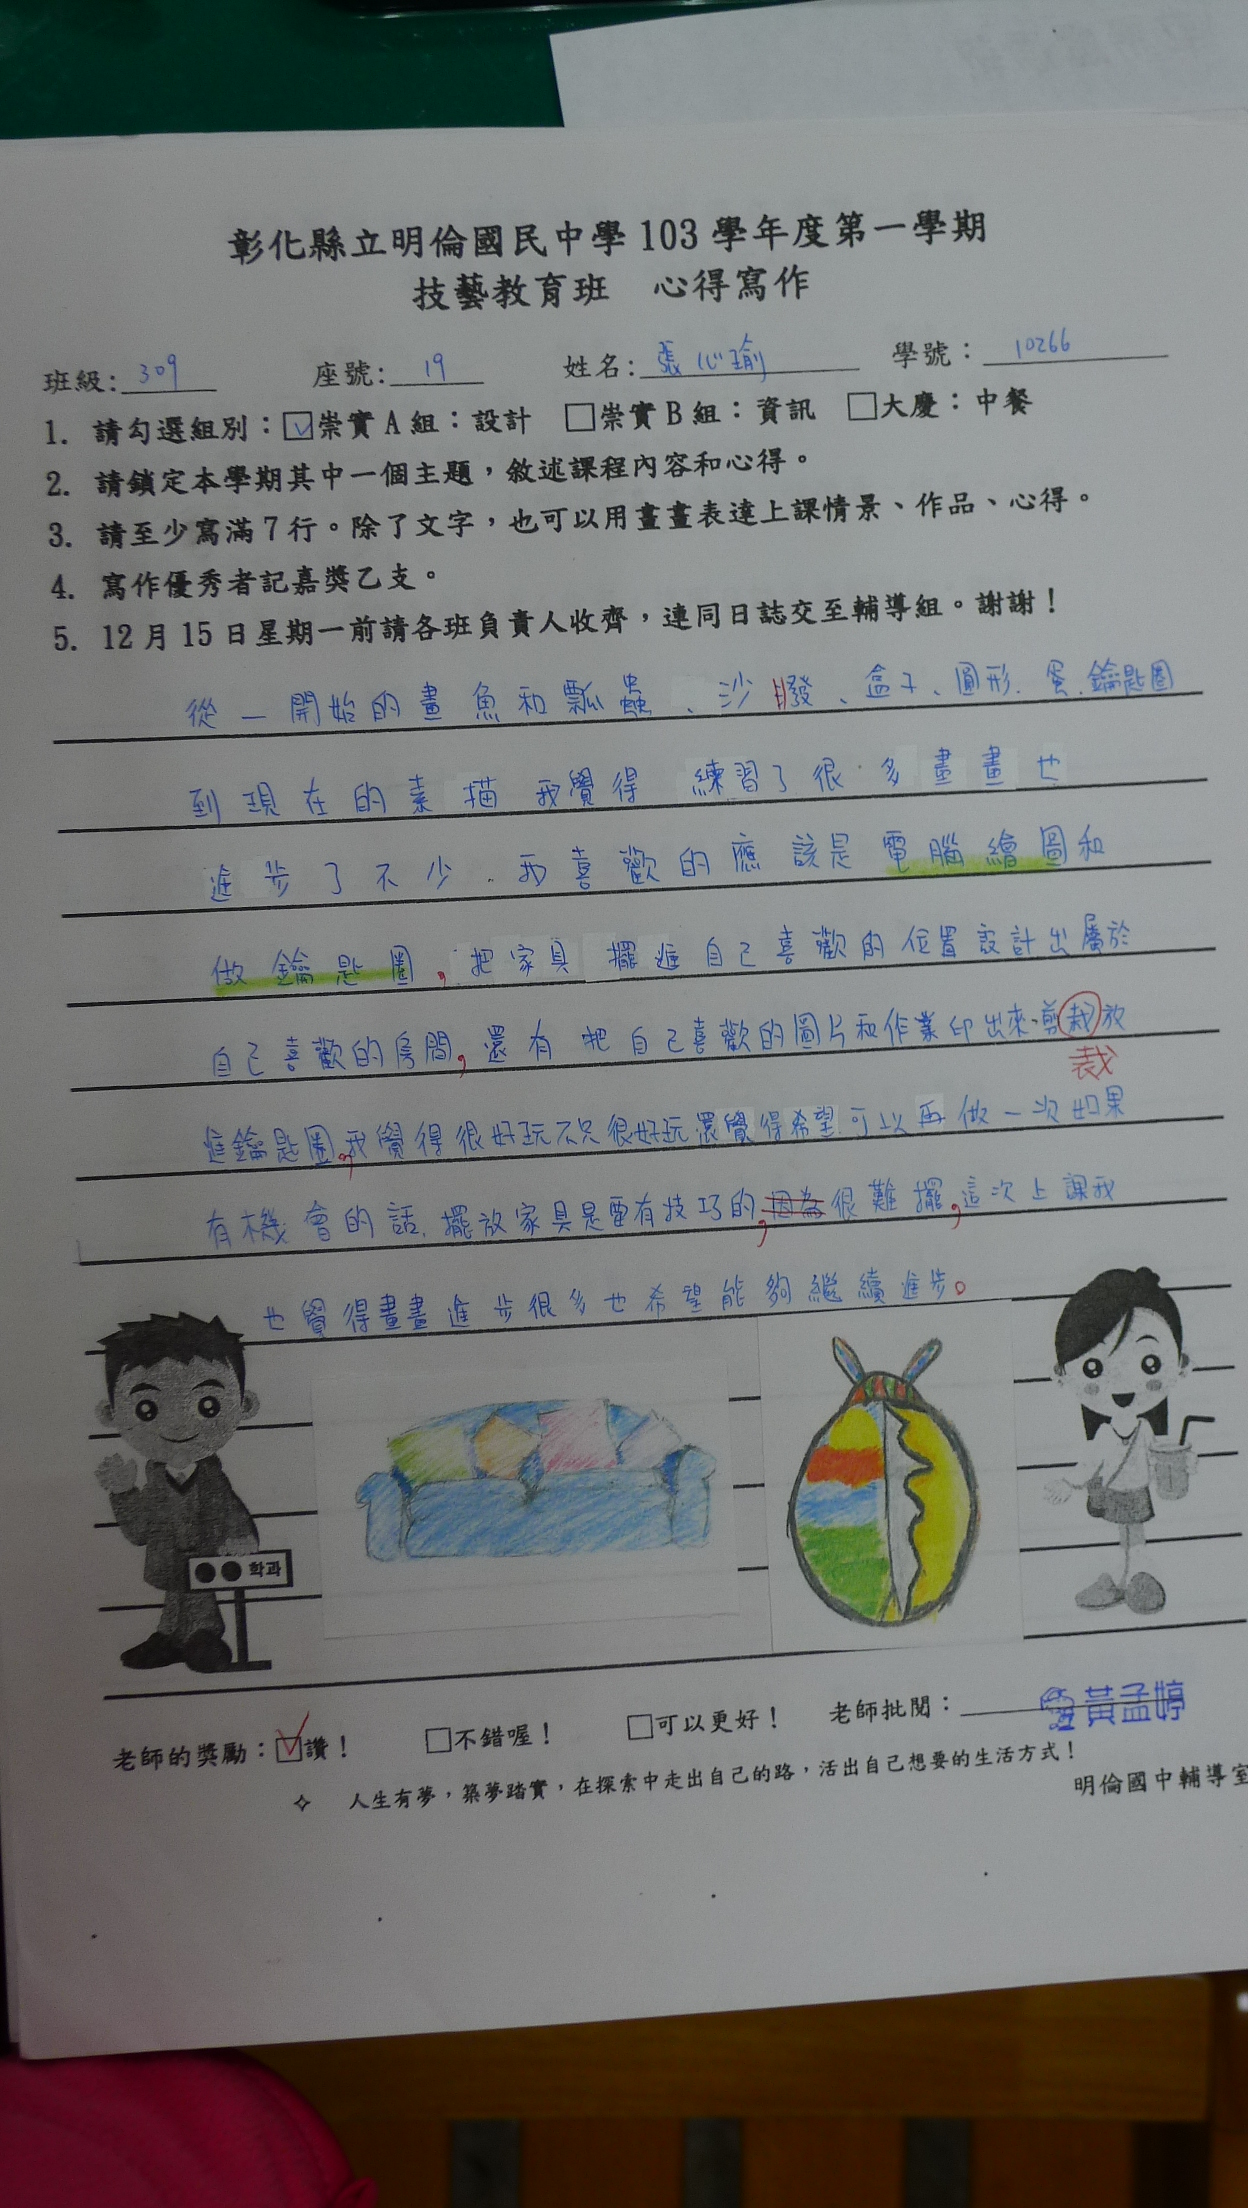 彰化縣立明倫國民中學 103 學年度第一學期
技藝教育班 心得寫作
班級:309 座號:19 姓名:張心瑜 學號:10266
1. 請勾選組別：☑崇實 A 組：設計 □崇實 B 組：資訊 □大慶：中餐
2. 請鎖定本學期其中一個主題，敘述課程內容和心得。
3. 請至少寫滿 7 行。除了文字，也可以用畫畫表達上課情景、作品、心得。
4. 寫作優秀者記嘉獎乙支。
5. 12 月 15 日星期一前請各班負責人收齊，連同日誌交至輔導組。謝謝！
從一開始的畫魚和瓢蟲、沙發、盒子、圓形、蛋、鑰匙圈
到現在的素描我覺得練習了很多畫畫也
進步了不少、我喜歡的應該是電腦繪圖和
做鑰匙圈，把家具擺進自己喜歡的位置設計出屬於
自己喜歡的房間，還有把自己喜歡的圖片和作業印出來、剪栽放
裁
進鑰匙圈，我覺得很好玩不只很好玩還覺得希望可以再做一次如果
有機會的話、擺放家具是要有技巧的，因為很難擺，這次上課我
也覺得畫畫進步很多也希望能夠繼續進步。
●● 학과
老師的獎勵：☑讚！ □不錯喔！ □可以更好！ 老師批閱：黃孟婷
✧ 人生有夢，築夢踏實，在探索中走出自己的路，活出自己想要的生活方式！
明倫國中輔導室